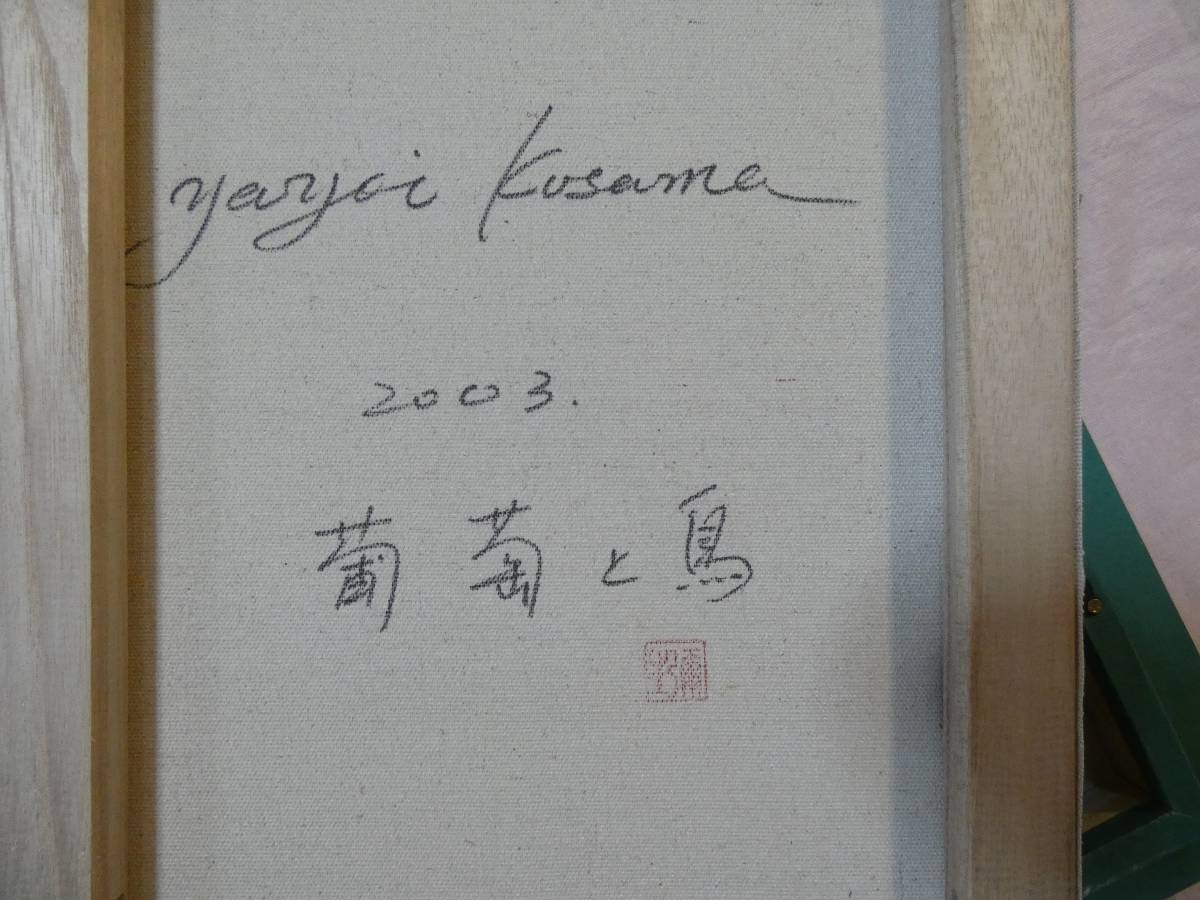 yayoi Kusama
2003.
葡萄と鳥